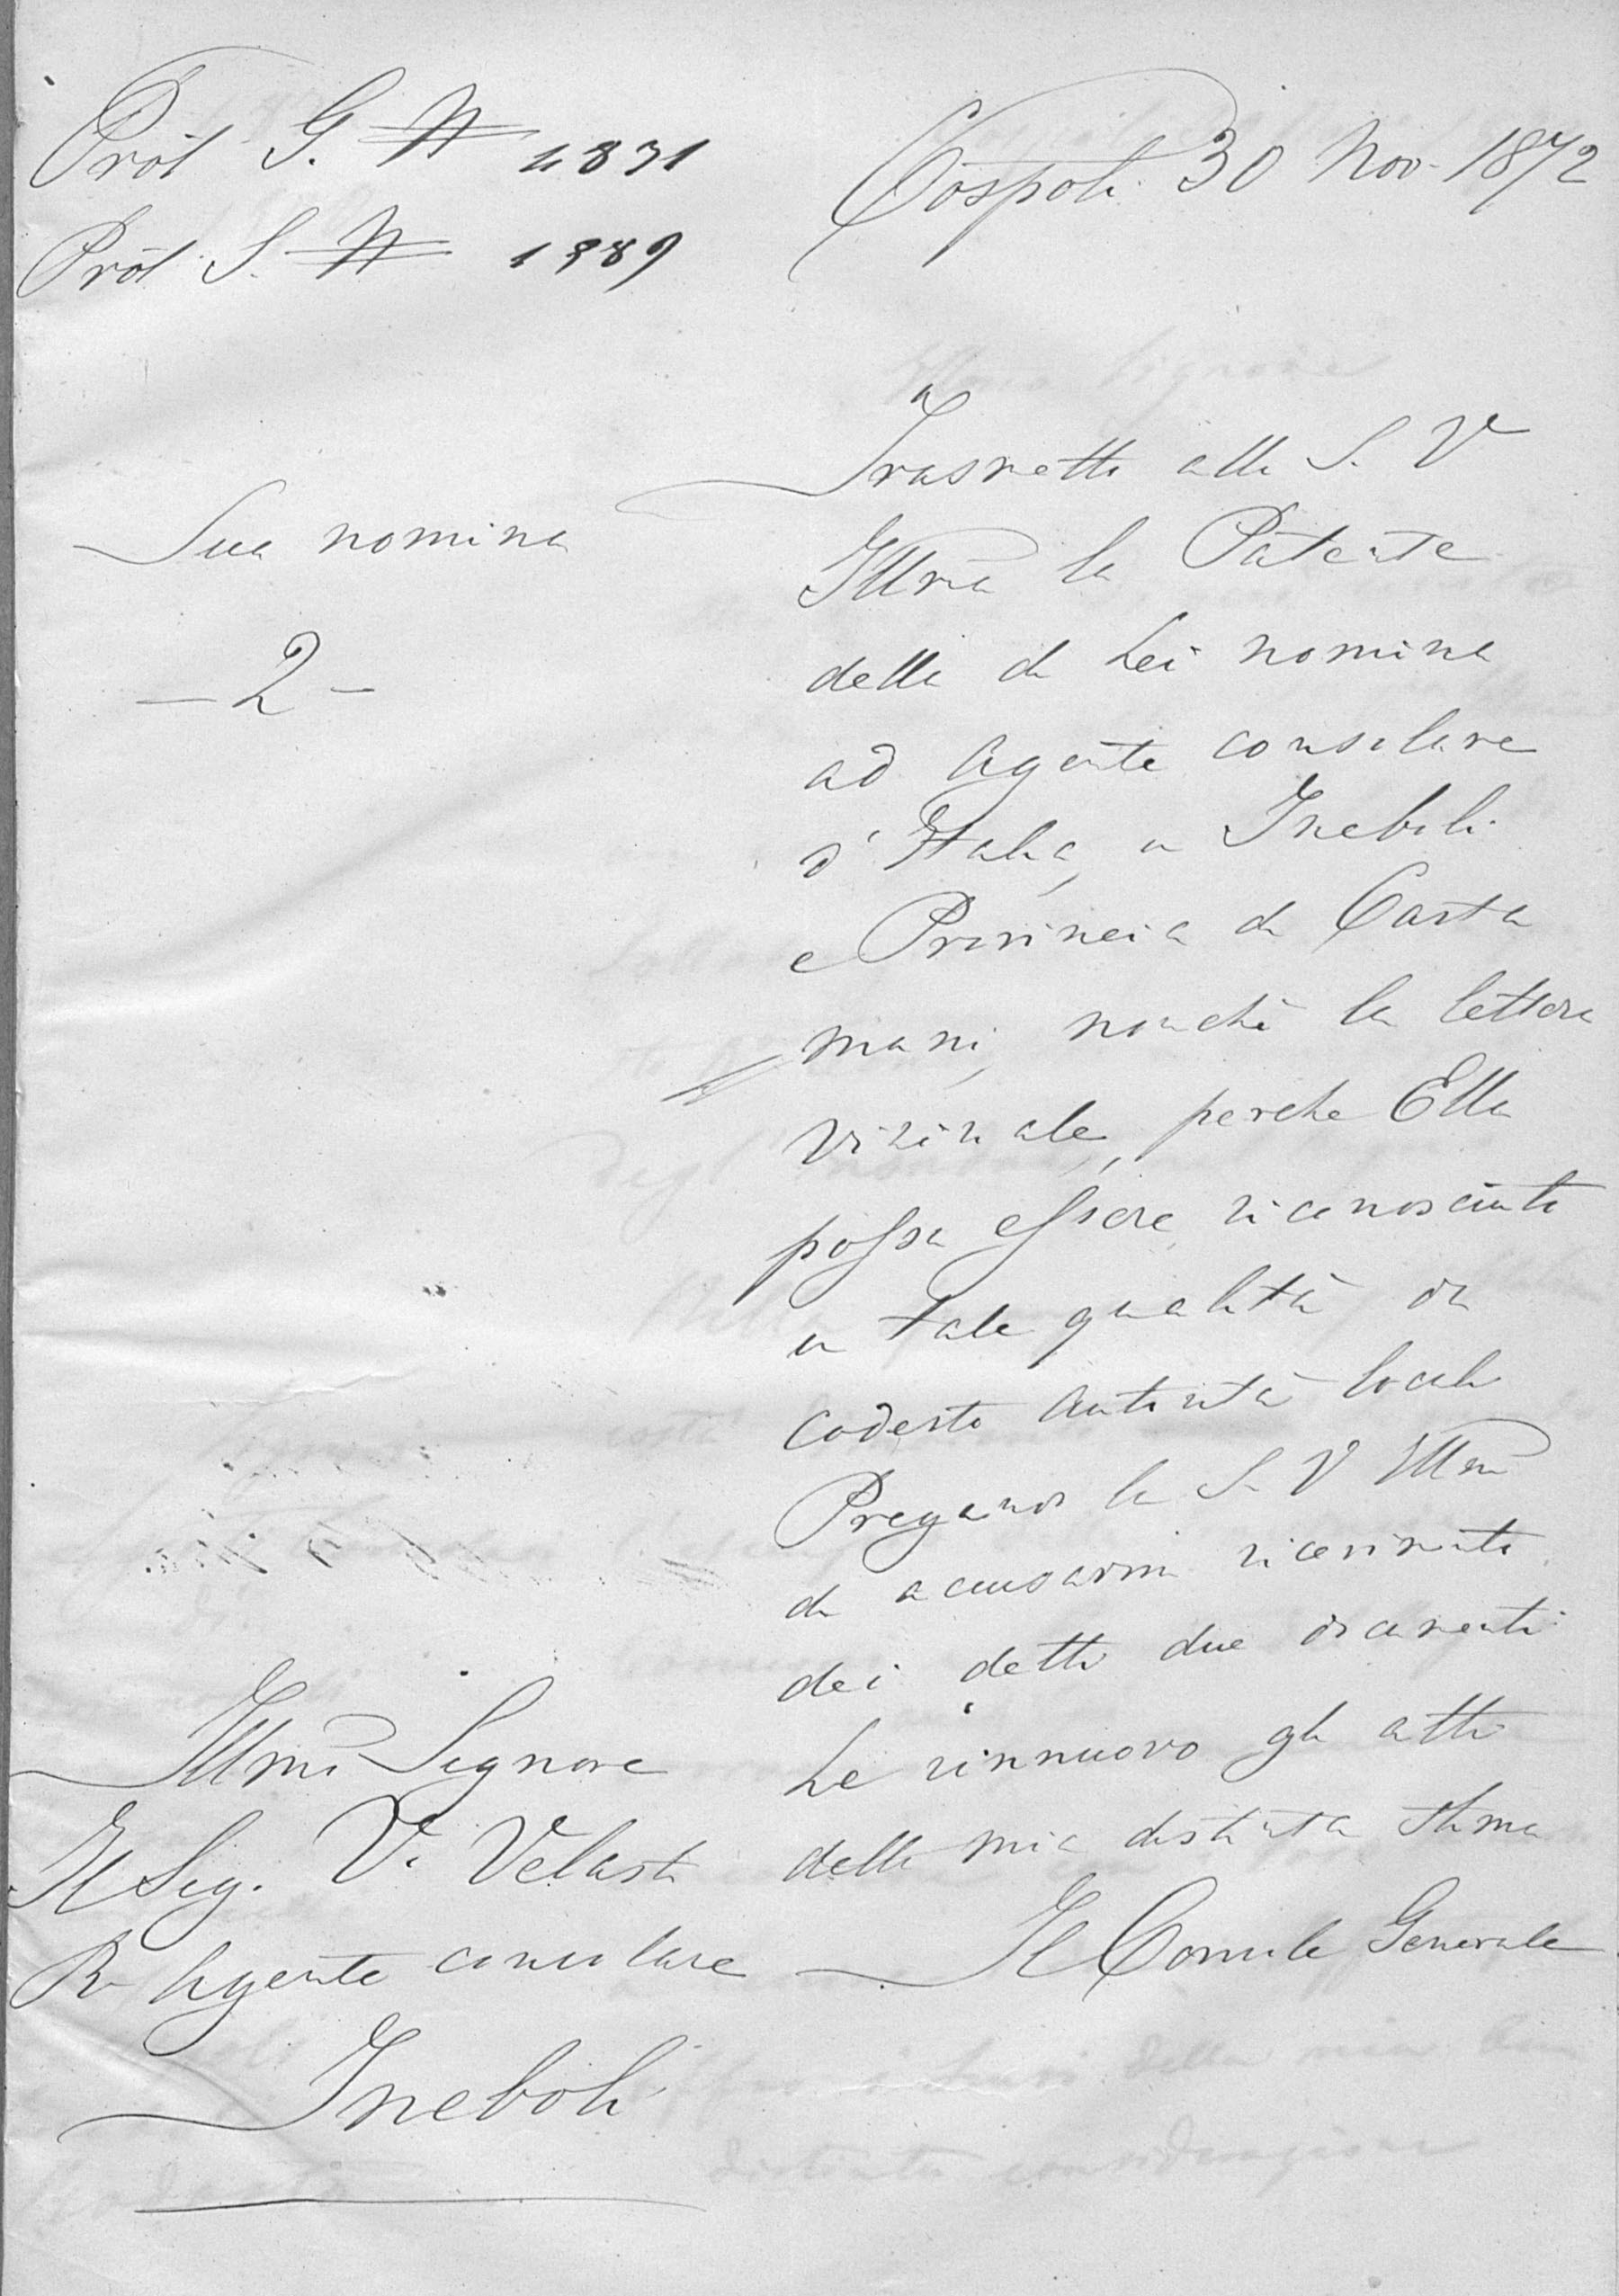 Prot G. N 4831
Prot S. N 1389
Cospoli 30 Nov. 1872
Sua nomina
— 2 —
Trasmetto alla S. V
Illma la Patente
della di Lei nomina
ad Agente consolare
d'Italia, a Ineboli
e Provincia di Casta
mani, nonchè la lettera
vizirale, perche Ella
possa essere riconosciuto
in tale qualità da
codeste autorità locali
Pregando la S. V Illma
di accusarmi ricevimento
dei detti due documenti
Le rinnuovo gli atti
della mia distinta stima
Il Console Generale
Illmo Signore
Il Sig. V. Velasti
R Agente consolare
Ineboli